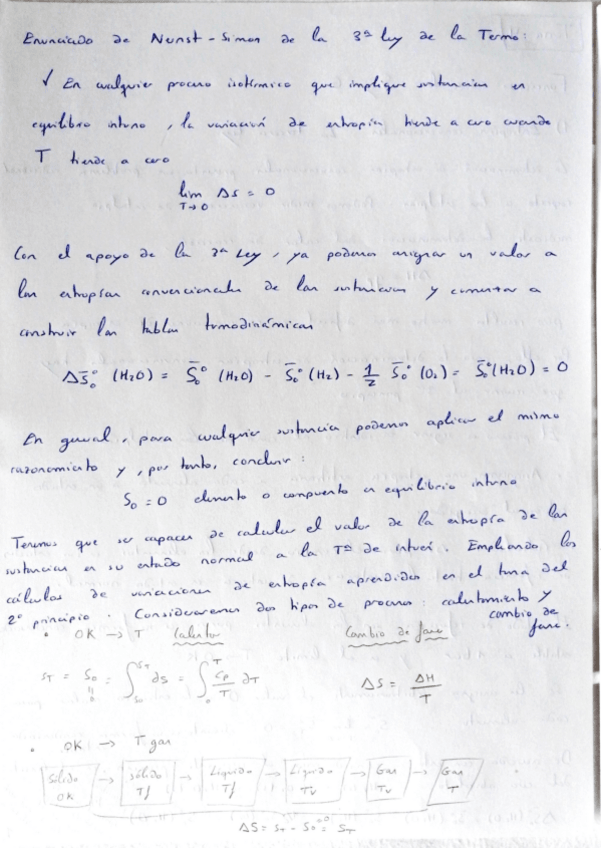 Enunciado de Nernst-Simon de la 3ª ley de la Termo:
✓ En cualquier proceso isotérmico que implique sustancias en
equilibrio interno, la variación de entropía tiende a cero cuando
T tiende a cero
lim ΔS = 0
T→0
Con el apoyo de la 3ª Ley, ya podemos asignar un valor a
las entropías convencionales de las sustancias y comenzar a
construir las tablas termodinámicas
ΔS̄₀° (H₂O) = S̄₀° (H₂O) - S̄₀° (H₂) - 1/2 S̄₀° (O₂) = S̄₀° (H₂O) = 0
En general, para cualquier sustancia podemos aplicar el mismo
razonamiento y, por tanto, concluir:
S₀ = 0 elemento o compuesto en equilibrio interno
Tenemos que ser capaces de calcular el valor de la entropía de las
sustancias en su estado normal a la Tª de interés. Empleando los
cálculos de variaciones de entropía aprendidos en el tema del
2º principio. Consideraremos dos tipos de procesos: calentamiento y
cambio de fase.
• 0K → T Calentar Cambio de fase
S_T = S₀ = ∫_{S₀}^{S_T} dS = ∫_0^T Cp/T dT ΔS = ΔH/T
0
• 0K → T gas
Sólido 0K → Sólido Tf → Líquido Tf → Líquido Tv → Gas Tv → Gas T
ΔS = S_T - S₀ = S_T